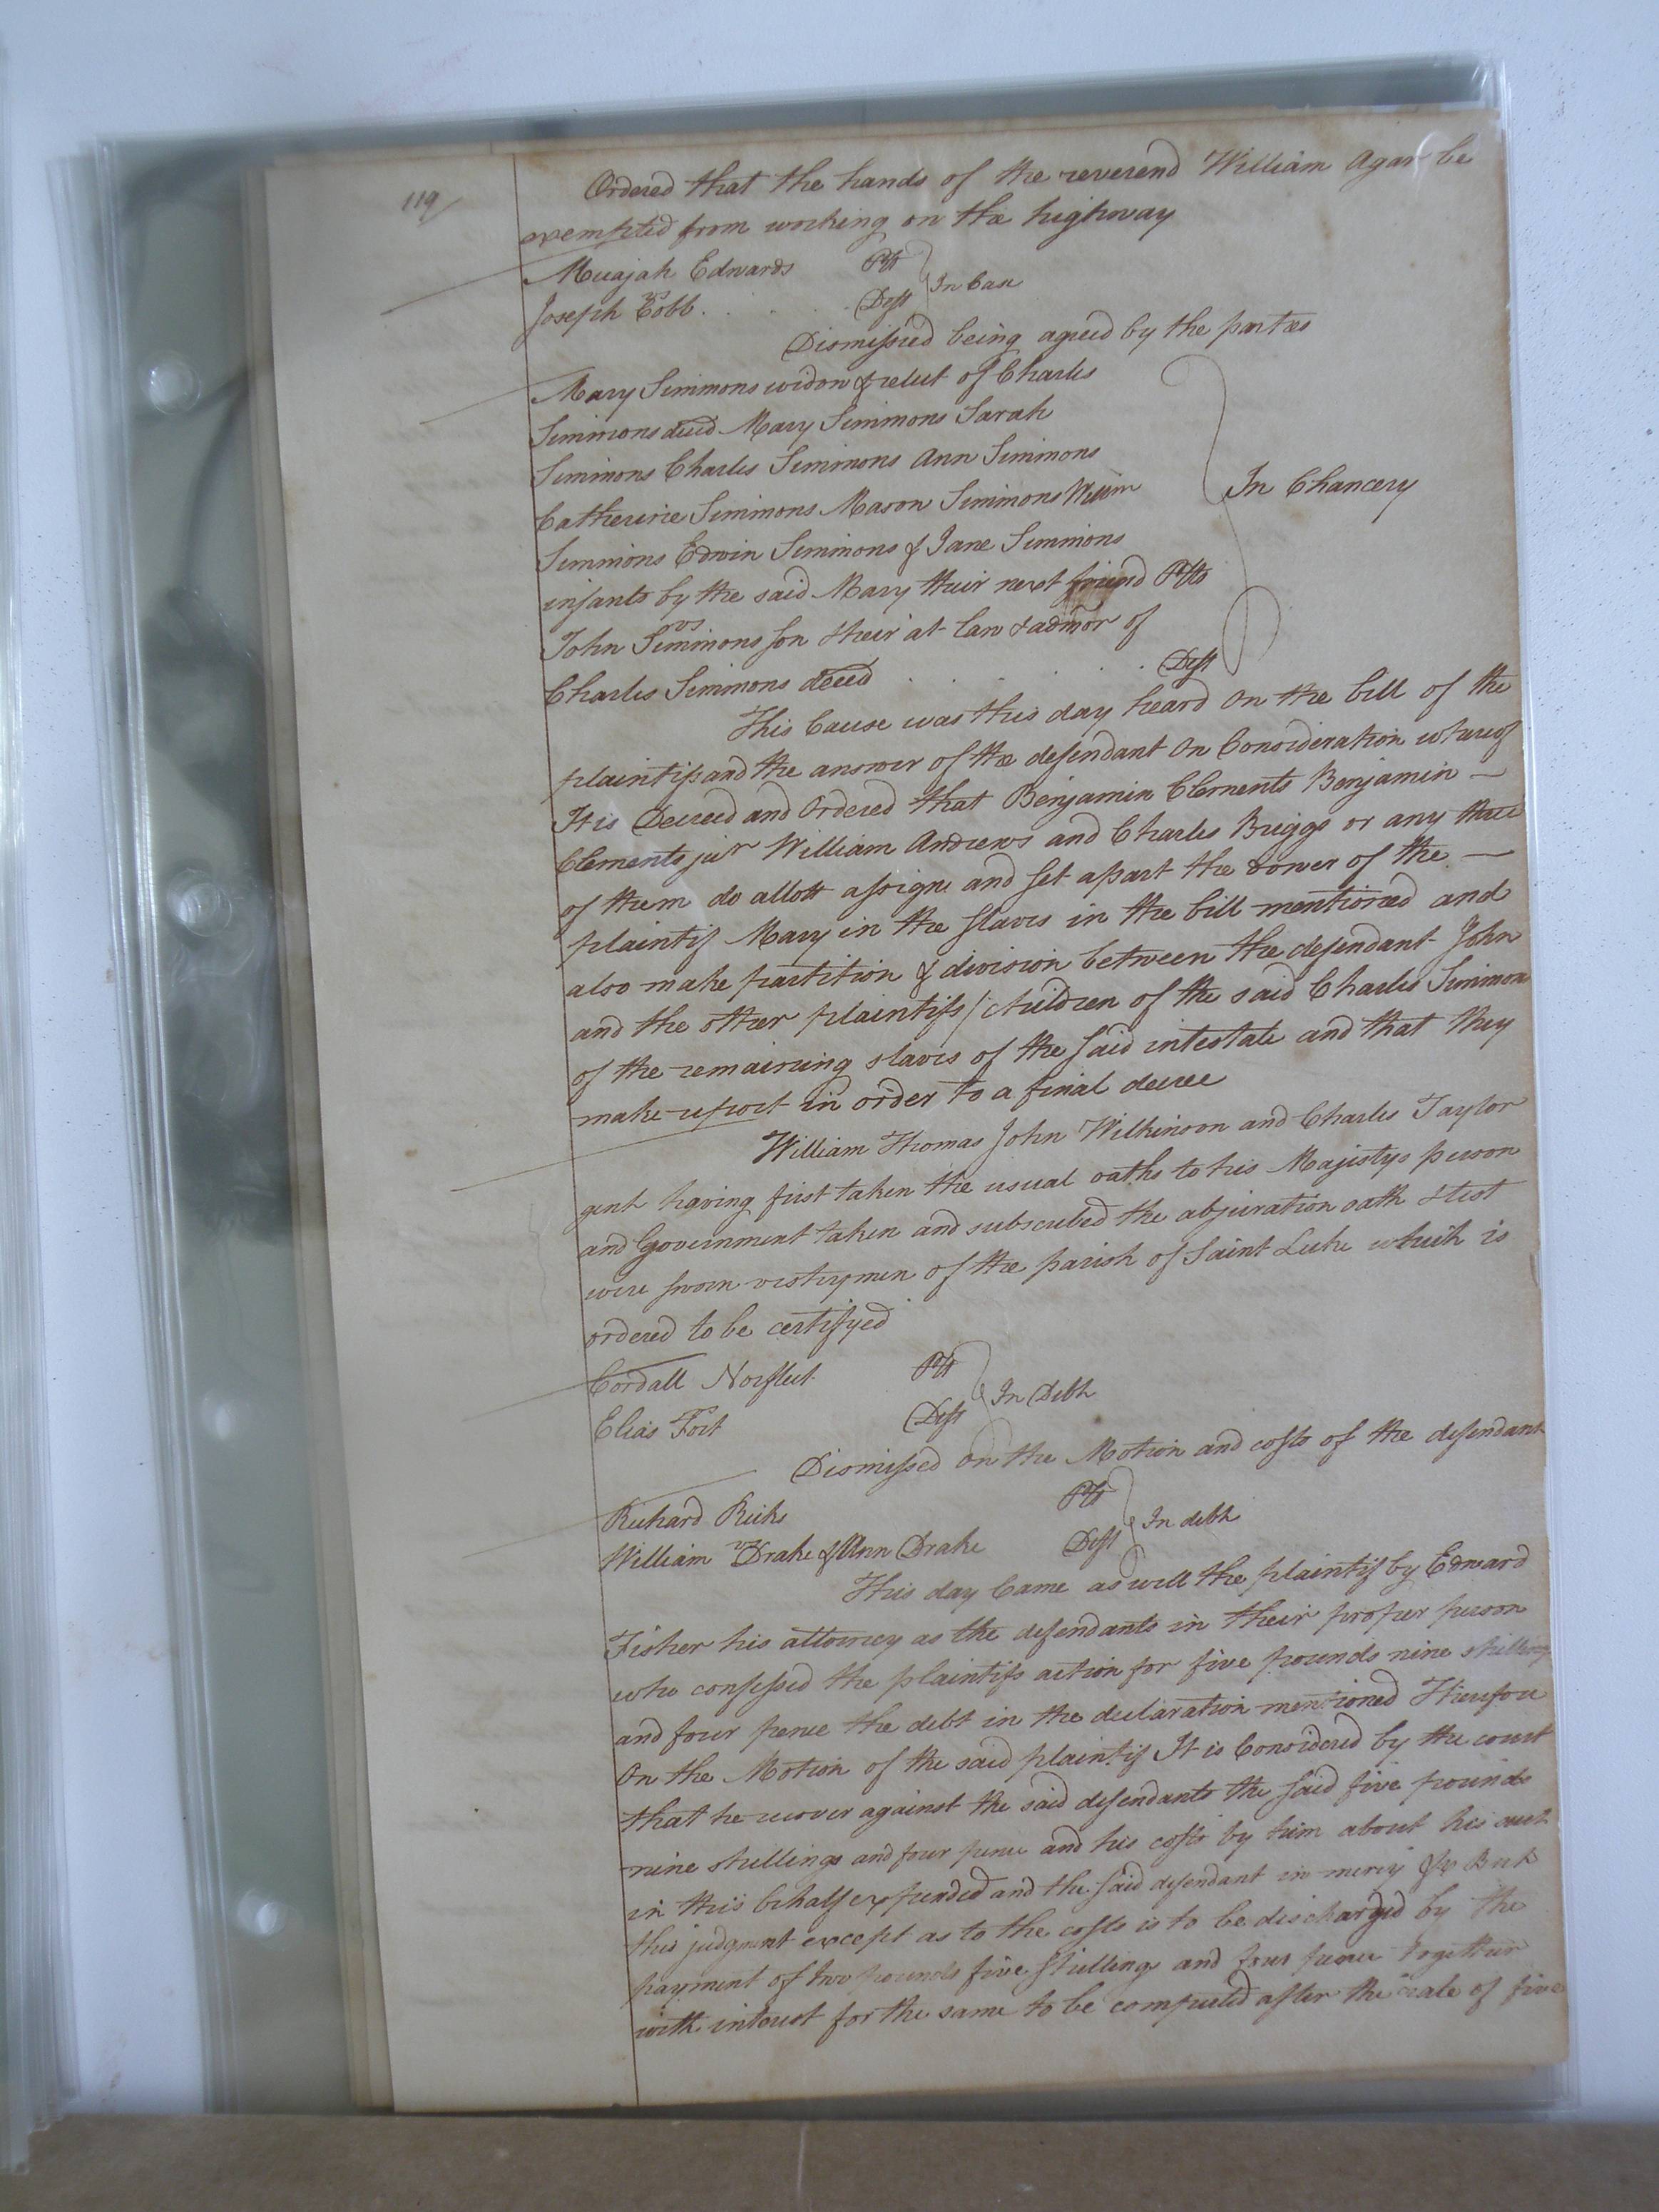 119
Ordered that the hands of the reverend William Agar be
exempted from working on the highway
Micajah Edwards Plt
vs } In Case
Joseph Cobb . . . . Deft
Dismissed being agreed by the parties
Mary Simmons widow & relict of Charles
Simmons decd Mary Simmons Sarah
Simmons Charles Simmons Ann Simmons
Catherine Simmons Mason Simmons Willm } In Chancery
Simmons Edwin Simmons & Jane Simmons
infants by the said Mary their next friend Plts
vs
John Simmons son & heir at law & admor of
Charles Simmons decd . . . . Deft
This Cause was this day heard On the bill of the
plaintifs and the answer of the defendant On Consideration whereof
It is Decreed and Ordered that Benjamin Clements Benjamin —
Clements junr William Andrews and Charles Briggs or any three
of them do allott assigne and set apart the dower of the —
plaintif Mary in the slaves in the bill mentioned and
also make partition & division between the defendant John
and the other plaintifs / children of the said Charles Simmons
of the remaining slaves of the said intestate and that they
make report in order to a final decree
William Thomas John Wilkinson and Charles Taylor
gent having first taken the usual oaths to his Majestys person
and Government taken and subscribed the abjuration oath & test
were sworn vestrymen of the parish of Saint Luke which is
ordered to be certifyed
Cordall Norfleet Plt
vs } In Debt
Elias Fort Deft
Dismissed On the Motion and costs of the defendant
Richard Ricks Plt
vs } In debt
William Drake & Ann Drake Deft
This day Came as well the plaintif by Edward
Fisher his attorney as the defendants in their proper person
who confessed the plaintifs action for five pounds nine shillings
and four pence the debt in the declaration mentioned Therefore
On the Motion of the said plaintif It is Considered by the court
that he recover against the said defendants the said five pounds
nine shillings and four pence and his costs by him about his suit
in this behalf expended and the said defendant in mercy &c But
this judgment except as to the costs is to be discharged by the
payment of two pounds five shillings and four pence together
with interest for the same to be computed after the rate of five